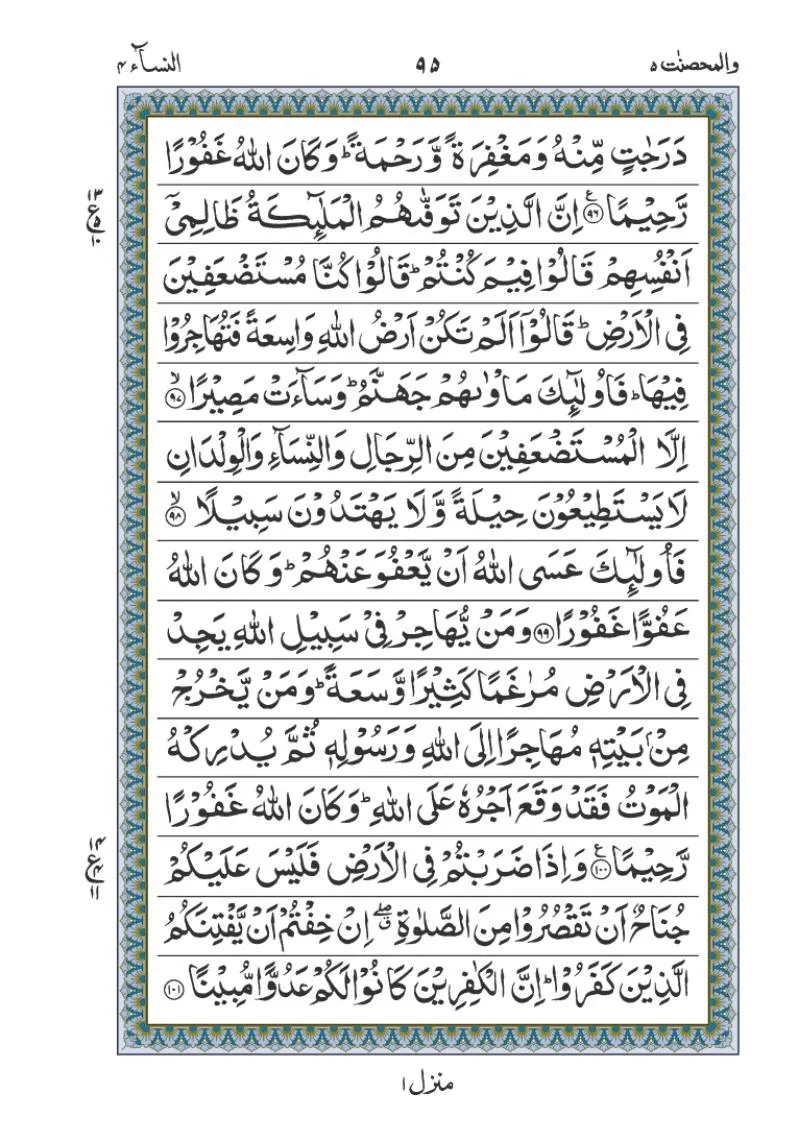 والمحصنٰت ٥ ٩٥ النسآء ٤
دَرَجٰتٍ مِّنْهُ وَمَغْفِرَةً وَّرَحْمَةً ؕ وَكَانَ اللّٰهُ غَفُوْرًا
رَّحِيْمًا ﴿٩٦﴾ ع اِنَّ الَّذِيْنَ تَوَفّٰىهُمُ الْمَلٰٓئِكَةُ ظَالِمِيْۤ
١٣
ع
٥
١٠
اَنْفُسِهِمْ قَالُوْا فِيْمَ كُنْتُمْ ؕ قَالُوْا كُنَّا مُسْتَضْعَفِيْنَ
فِى الْاَرْضِ ؕ قَالُوْۤا اَلَمْ تَكُنْ اَرْضُ اللّٰهِ وَاسِعَةً فَتُهَاجِرُوْا
فِيْهَا ؕ فَاُولٰٓئِكَ مَاْوٰىهُمْ جَهَنَّمُ ؕ وَسَآءَتْ مَصِيْرًا ﴿٩٧﴾ ۙ
اِلَّا الْمُسْتَضْعَفِيْنَ مِنَ الرِّجَالِ وَالنِّسَآءِ وَالْوِلْدَانِ
لَا يَسْتَطِيْعُوْنَ حِيْلَةً وَّلَا يَهْتَدُوْنَ سَبِيْلًا ﴿٩٨﴾ ۙ
فَاُولٰٓئِكَ عَسَى اللّٰهُ اَنْ يَّعْفُوَ عَنْهُمْ ؕ وَكَانَ اللّٰهُ
عَفُوًّا غَفُوْرًا ﴿٩٩﴾ وَمَنْ يُّهَاجِرْ فِيْ سَبِيْلِ اللّٰهِ يَجِدْ
فِى الْاَرْضِ مُرٰغَمًا كَثِيْرًا وَّسَعَةً ؕ وَمَنْ يَّخْرُجْ
مِنْۢ بَيْتِهٖ مُهَاجِرًا اِلَى اللّٰهِ وَرَسُوْلِهٖ ثُمَّ يُدْرِكْهُ
الْمَوْتُ فَقَدْ وَقَعَ اَجْرُهٗ عَلَى اللّٰهِ ؕ وَكَانَ اللّٰهُ غَفُوْرًا
رَّحِيْمًا ﴿١٠٠﴾ ع وَاِذَا ضَرَبْتُمْ فِى الْاَرْضِ فَلَيْسَ عَلَيْكُمْ
١٤
ع
٤
١١
جُنَاحٌ اَنْ تَقْصُرُوْا مِنَ الصَّلٰوةِ ۖ ق اِنْ خِفْتُمْ اَنْ يَّفْتِنَكُمُ
الَّذِيْنَ كَفَرُوْا ؕ اِنَّ الْكٰفِرِيْنَ كَانُوْا لَكُمْ عَدُوًّا مُّبِيْنًا ﴿١٠١﴾
منزل ١